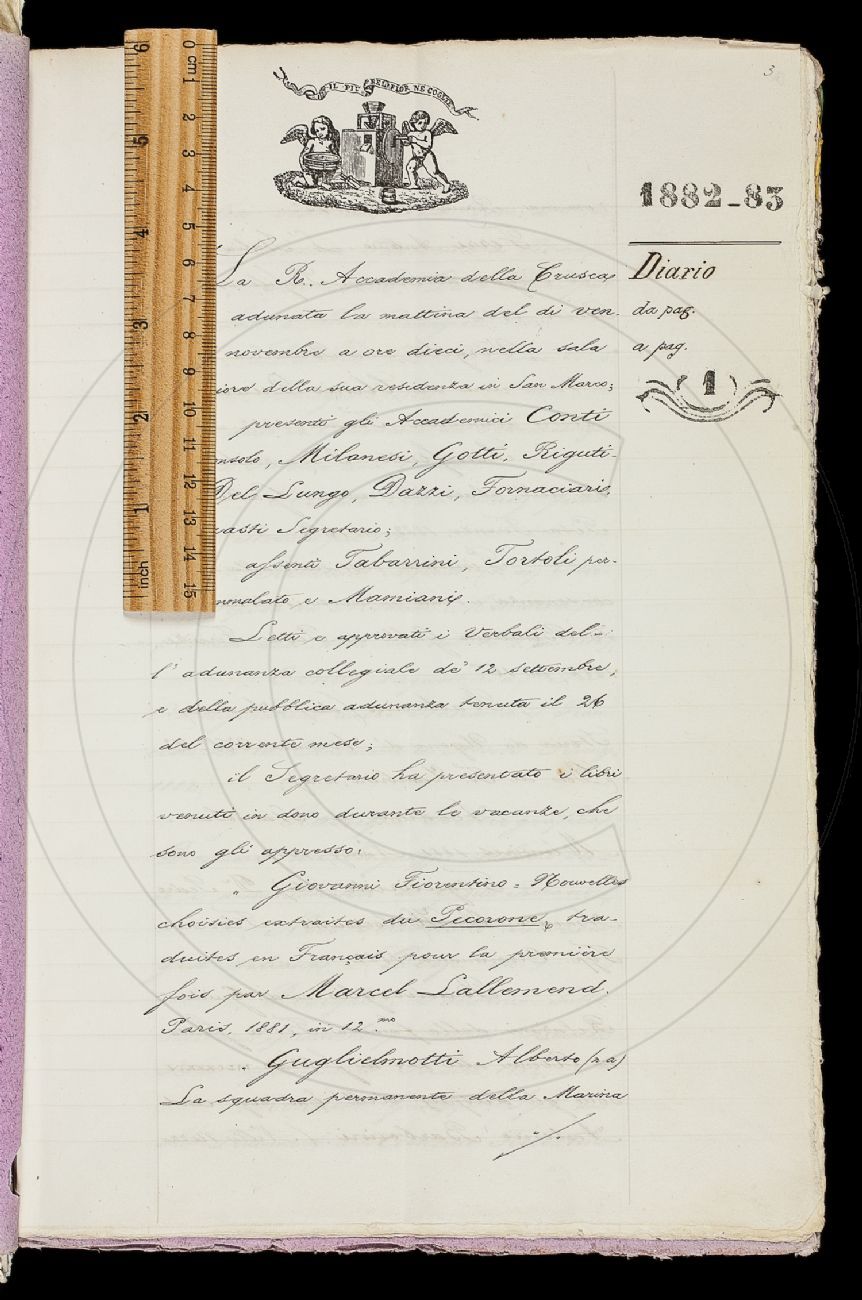 IL PIÙ BEL FIOR NE COGLIE
3
1882-83
Diario
da pag.
a pag.
1
La R. Accademia della Crusca,
adunata la mattina del dì ven-
novembre a ore dieci, nella sala
iore della sua residenza in San Marco;
presenti gli Accademici Conti
nsolo, Milanesi, Gotti, Riguti-
Del Lungo, Dazzi, Fornaciari,
asti Segretario;
assenti Tabarrini, Tortoli per-
mmalato, e Mamiani.
Letti e approvati i Verbali del-
l'adunanza collegiale de' 12 settembre,
e della pubblica adunanza tenuta il 26
del corrente mese;
il Segretario ha presentato i libri
venuti in dono durante le vacanze, che
sono gli appresso:
Giovanni Fiorentino = Nouvelles
choisies extraites du Pecorone, tra-
duites en Français pour la première
fois par Marcel Lallemend.
Paris, 1881, in 12.mo
Guglielmotti Alberto (P.a)
La squadra permanente della Marina
./.
0 cm 1 2 3 4 5 6 7 8 9 10 11 12 13 14 15
inch 1 2 3 4 5 6